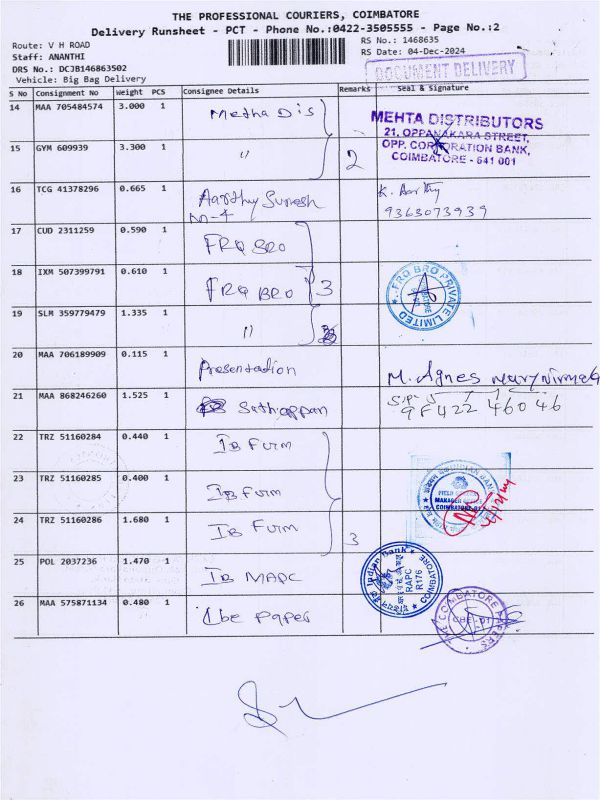 THE PROFESSIONAL COURIERS, COIMBATORE
Delivery Runsheet - PCT - Phone No.:0422-3505555 - Page No.:2
Route: V H ROAD
RS No.: 1468635
Staff: ANANTHI
RS Date: 04-Dec-2024
DRS No.: DCJB146863502
Vehicle: Big Bag Delivery
DOCUMENT DELIVERY
S No Consignment No Weight PCS Consignee Details Remarks Seal & Signature
14 MAA 705484574 3.000 1 Metha Dis
MEHTA DISTRIBUTORS
21, OPPANAKARA STREET,
OPP. CORPORATION BANK,
COIMBATORE - 641 001
15 GYM 609939 3.300 1 " 2
16 TCG 41378296 0.665 1 Aarthy Suresh K. Aarthy
9363073939
17 CUD 2311259 0.590 1 FRQ BRO
18 IXM 507399791 0.610 1 FRQ BRO 3
FRQ BRO PRIVATE LIMITED
19 SLM 359779479 1.335 1 "
20 MAA 706189909 0.115 1 Presentation M. Agnes Mary Nirmala
21 MAA 868246260 1.525 1 Sathiappan
22 TRZ 51160284 0.440 1 IB Furm
23 TRZ 51160285 0.400 1 IB Furm
INDIAN BANK
MANAGER
COIMBATORE
24 TRZ 51160286 1.680 1 IB Furm 3
25 POL 2037236 1.470 1 IB MAPC
Indian Bank
RAPC
R176
COIMBATORE
26 MAA 575871134 0.480 1 Cbe Paper
COIMBATORE PAPERS